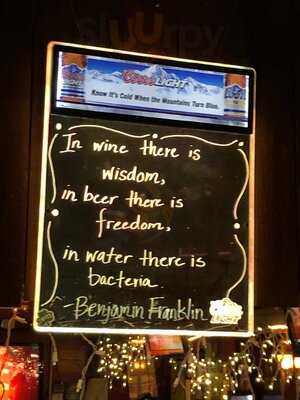 slurrpy
Coors LIGHT
Know It's Cold When the Mountains Turn Blue.
In wine there is
wisdom,
in beer there is
freedom,
in water there is
bacteria.
- Benjamin Franklin